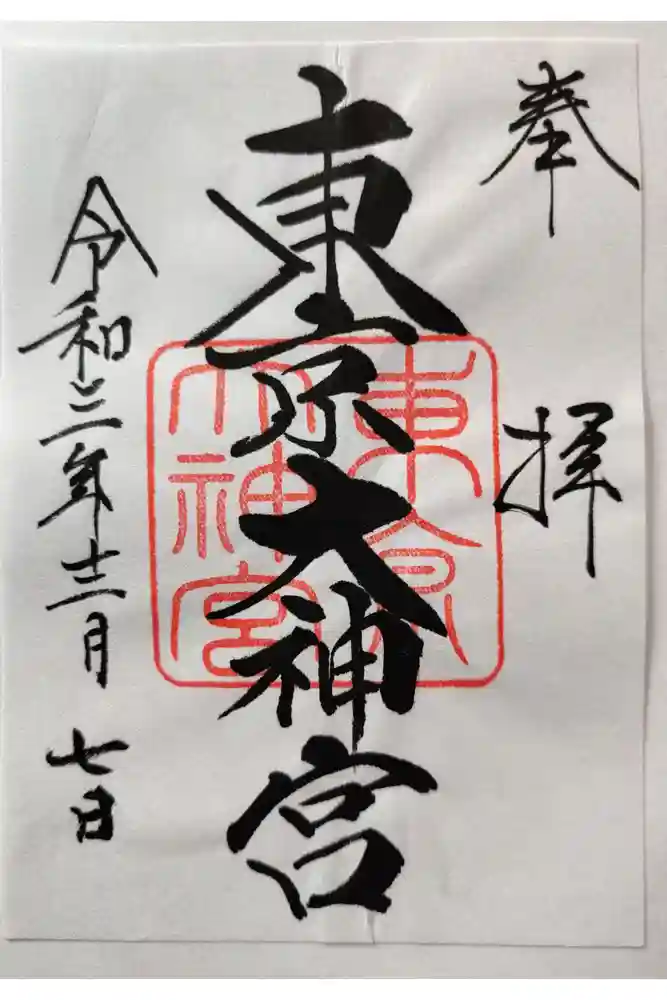 奉拝
東京大神宮
東京
大神宮
令和三年十二月七日